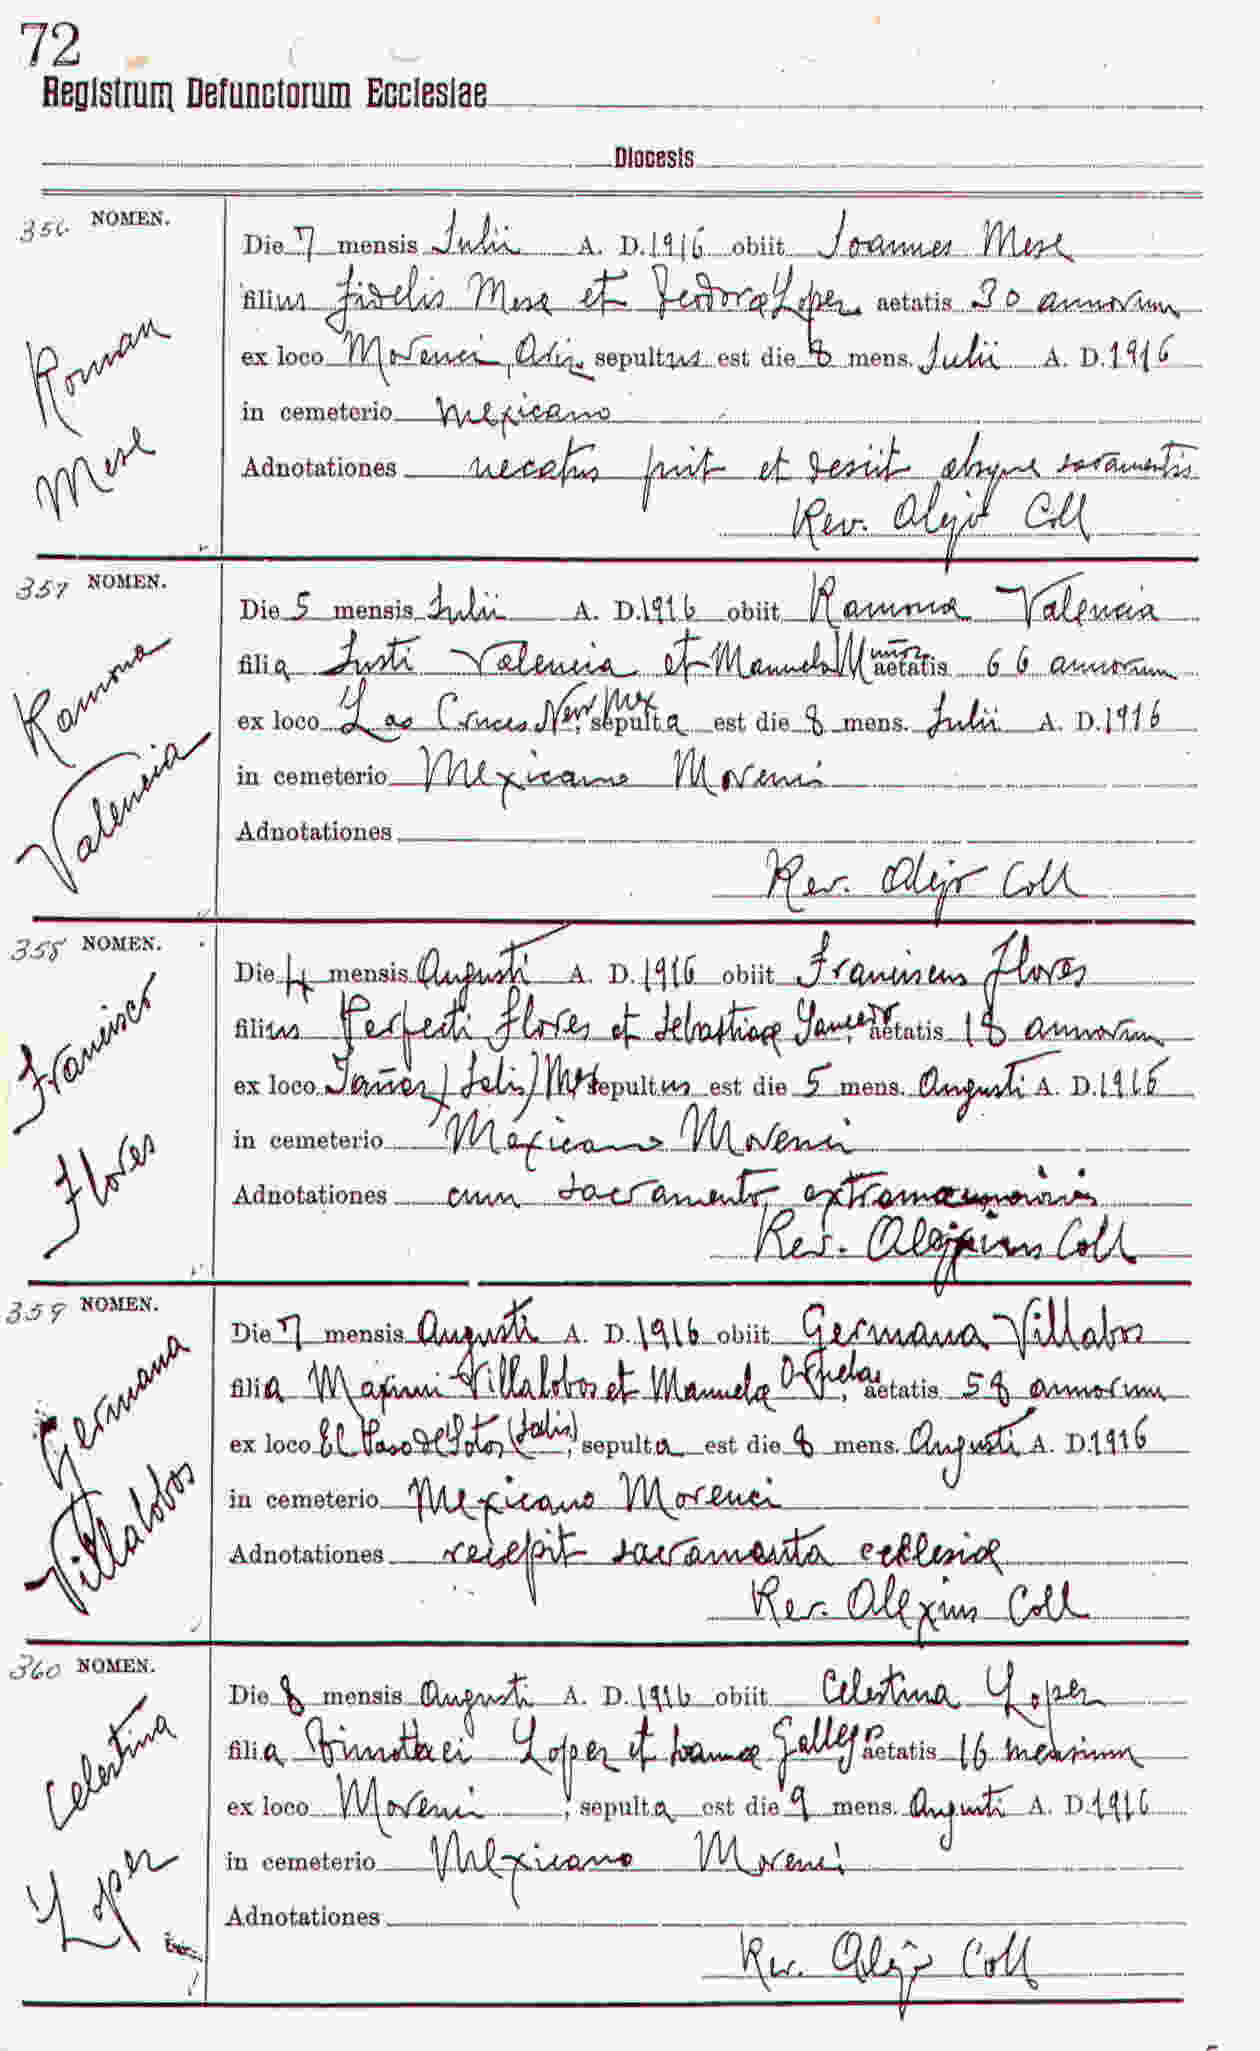 72
Registrum Defunctorum Ecclesiae
Diocesis
356 NOMEN.
Roman
Mese
Die 7 mensis Julii A. D. 1916 obiit Joannes Mese
filius Fidelis Mese et Teodoræ Lopez aetatis 30 annorum
ex loco Morenci, Ariz. sepultus est die 8 mens. Julii A. D. 1916
in cemeterio mexicano
Adnotationes necatus fuit et desiit absque sacramentis
Rev. Alejo Coll
357 NOMEN.
Ramona
Valencia
Die 5 mensis Julii A. D. 1916 obiit Ramona Valencia
filia Justi Valencia et Manuela Muñoz aetatis 66 annorum
ex loco Las Cruces New Mex, sepulta est die 8 mens. Julii A. D. 1916
in cemeterio Mexicano Morenci
Adnotationes
Rev. Alejo Coll
358 NOMEN.
Francisco
Flores
Die 4 mensis Augusti A. D. 1916 obiit Franciscus Flores
filius Perfecti Flores et Sebastiæ aetatis 18 annorum
ex loco (Jalis) Mex sepultus est die 5 mens. Augusti A. D. 1916
in cemeterio Mexicano Morenci
Adnotationes cum sacramento
Rev. Coll
359 NOMEN.
Germana
Villalobos
Die 7 mensis Augusti A. D. 1916 obiit Germana Villabos
filia Maximi Villalobos et Manuelæ , aetatis 58 annorum
ex loco El Paso de Sotos (Jalis), sepulta est die 8 mens. Augusti A. D. 1916
in cemeterio Mexicano Morenci
Adnotationes recepit sacramenta ecclesiæ
Rev. Alexius Coll
360 NOMEN.
Celestina
Lopez
Die 8 mensis Augusti A. D. 1916 obiit Celestina Lopez
filia Timothei Lopez et Joannæ Gallego aetatis 16 mensium
ex loco Morenci, sepulta est die 9 mens. Augusti A. D. 1916
in cemeterio Mexicano Morenci
Adnotationes
Rev. Alejo Coll